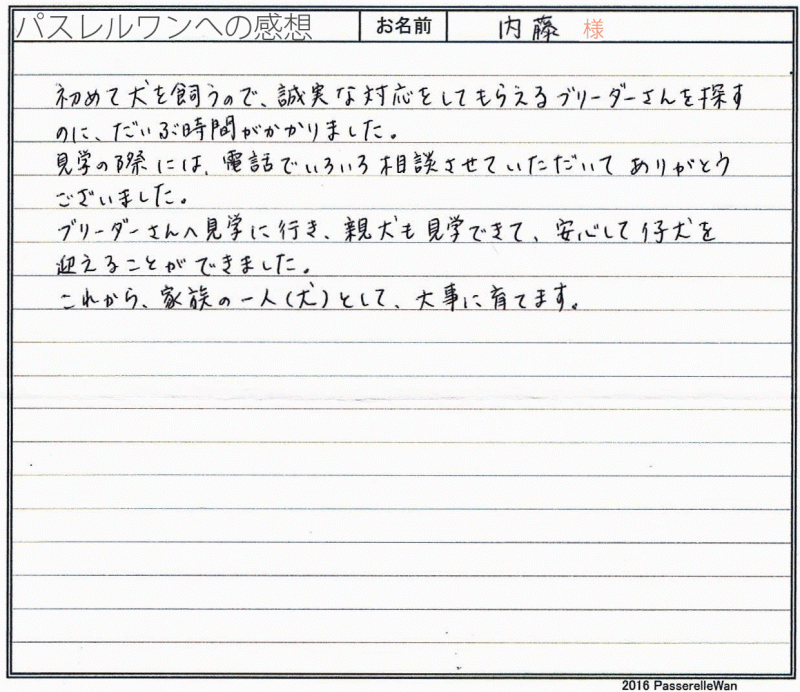 パスレルワンへの感想 お名前 内藤 様
初めて犬を飼うので、誠実な対応をしてもらえるブリーダーさんを探す
のに、だいぶ時間がかかりました。
見学の際には、電話でいろいろ相談させていただいてありがとう
ございました。
ブリーダーさんへ見学に行き、親犬も見学できて、安心して仔犬を
迎えることができました。
これから、家族の一人(犬)として、大事に育てます。
2016 PasserelleWan